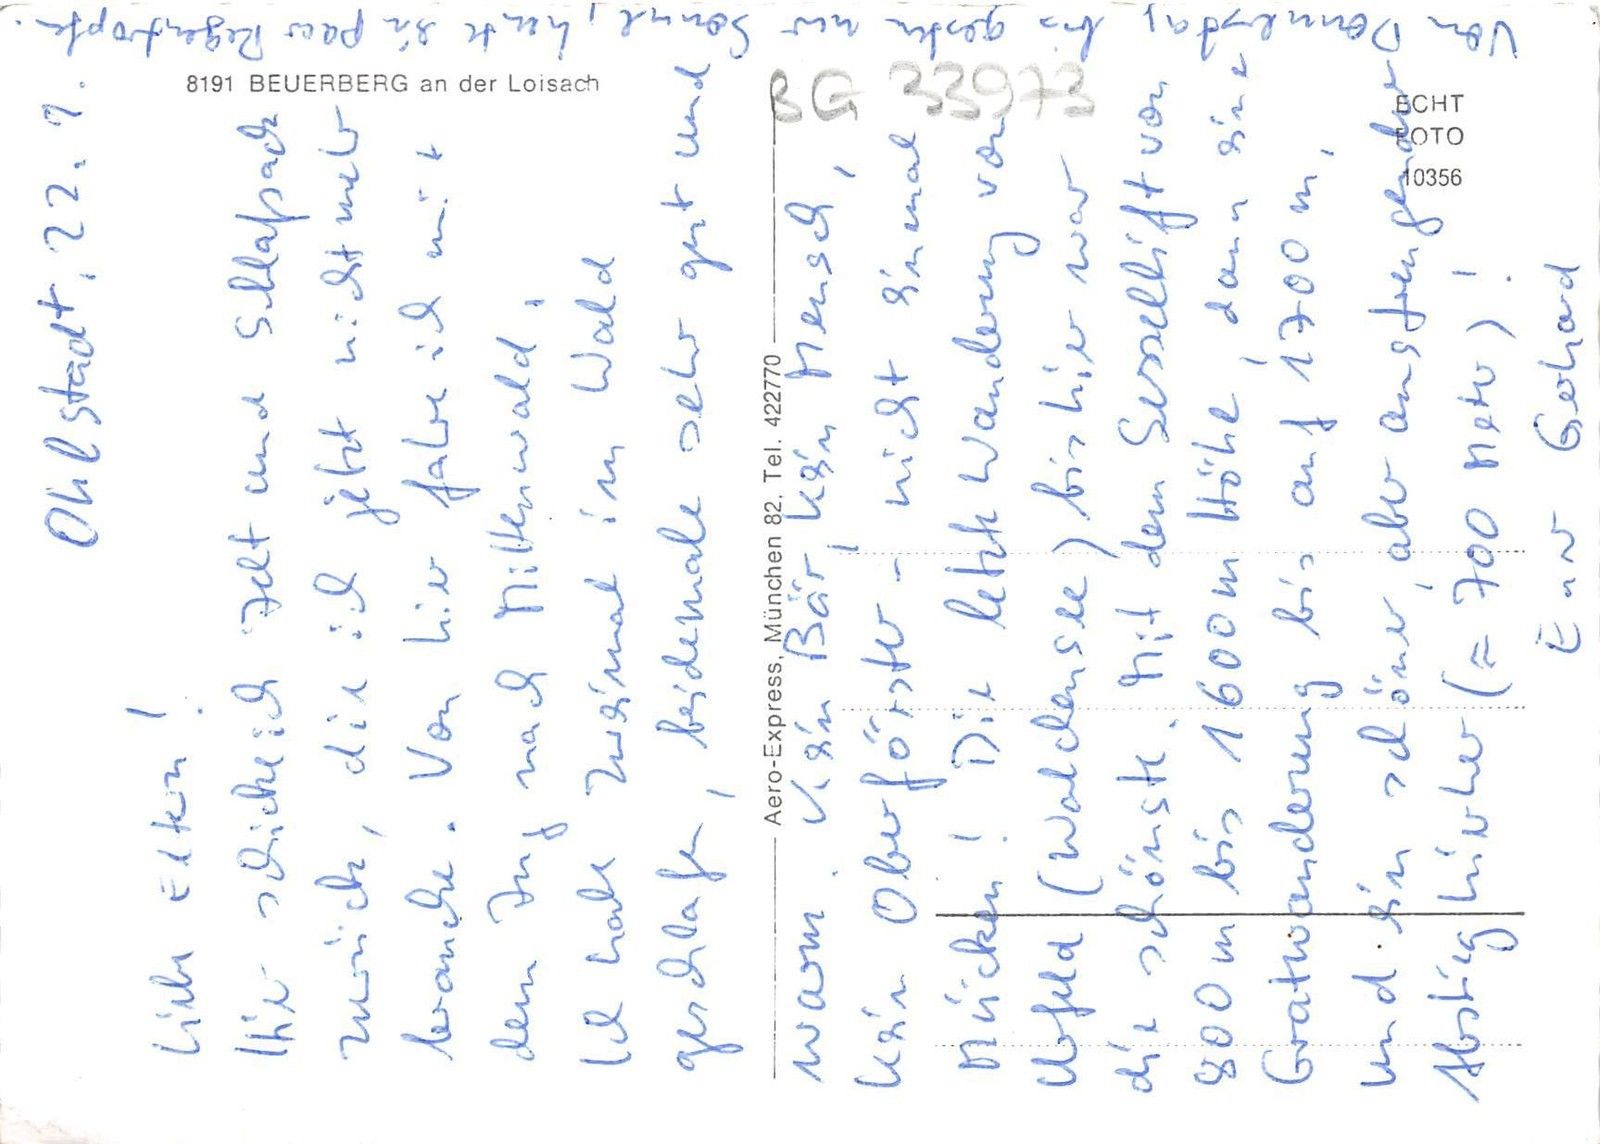 8191 BEUERBERG an der Loisach
Aero-Express, München 82, Tel. 4222770
BG 33973
ECHT
FOTO
10356
Ohlstadt, 22. 9.
Liebe Eltern!
Hier schicke ich Zelt und Schlafsack
zurück, die ich jetzt nicht mehr
brauche. Von hier fahre ich mit
dem Zug nach Mittenwald.
Ich habe zweimal im Wald
geschlafen, beidemale sehr gut und
warm. Kein Bär, kein Mensch,
kein Oberförster – nicht einmal
Mücken! Die letzte Wanderung von
Urfeld (Walchensee) bis hier war
die schönste. Mit dem Sessellift von
800 m bis 1600 m Höhe, dann eine
Gratwanderung bis auf 1700 m,
und ein schöner, aber anstrengender
Abstieg hierher (= 700 Meter)!
Euer Gerhard
Von Donnerstag bis gestern nur Sonne, heute ein paar Regentropfen.